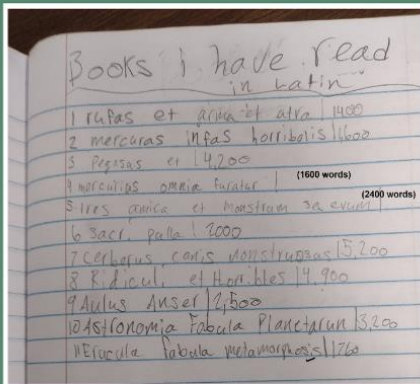 Books i have read
in Latin
1 rufas et arma et atra | 1400
2 mercuras infas horribolis | 1600
3 Pegasas et | 4,200
4 mercurius omnia furatur | (1600 words)
(2400 words)
5 tres amica et monstram saevum |
6 Sacr. palla | 2000
7 Cerberus canis monstruosus | 5,200
8 Ridicul. et Horribles | 4,900
9 Aulus Anser | 2,500
10 Astronomia Fabula Planetarun | 3,200
11 Erucula fabula metamorphosis | 1760